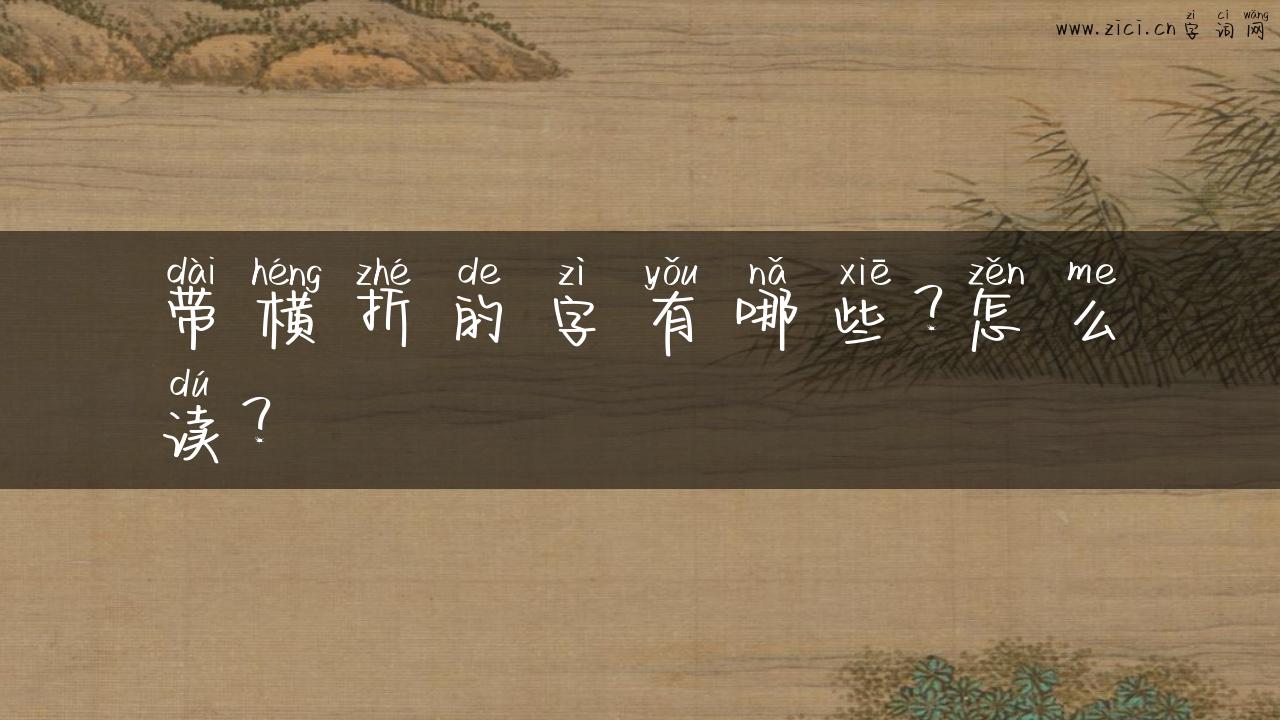 zì cí wǎng
www.zici.cn字词网
dài héng zhé de zì yǒu nǎ xiē zěn me
带横折的字有哪些?怎么
dú
读?